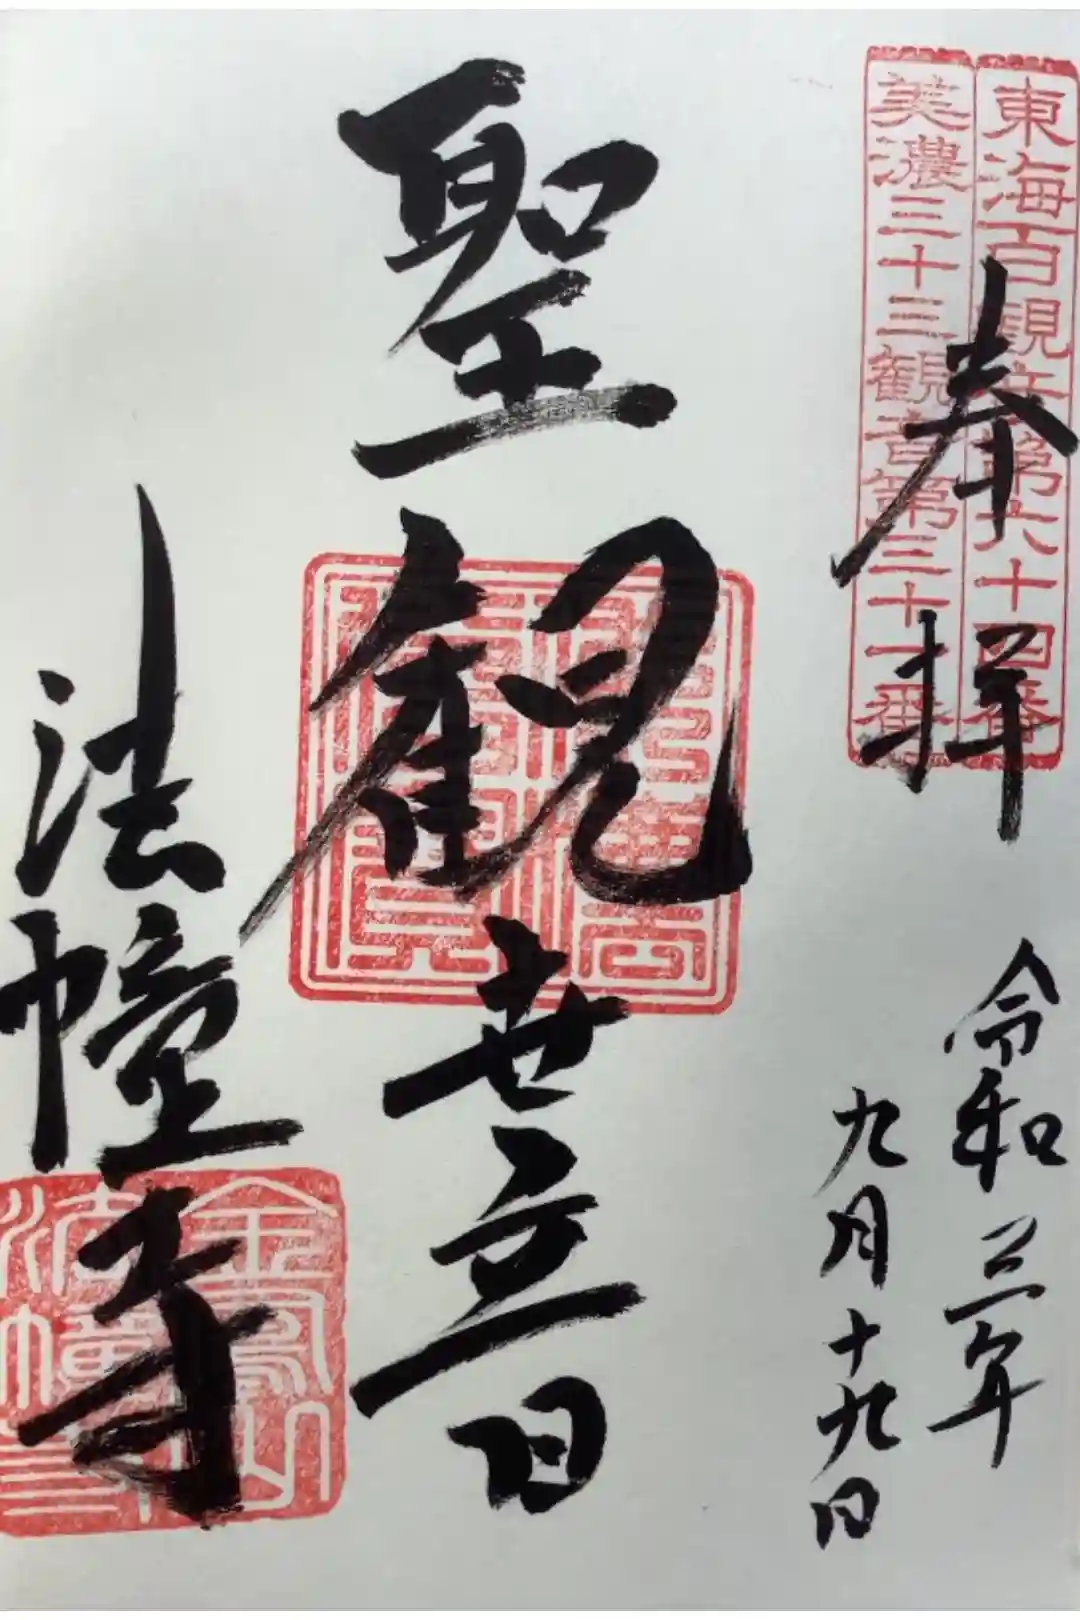 東海百観音第六十四番
美濃三十三観音第三十一番
奉拝
令和三年
九月十九日
聖観世音
法幢寺